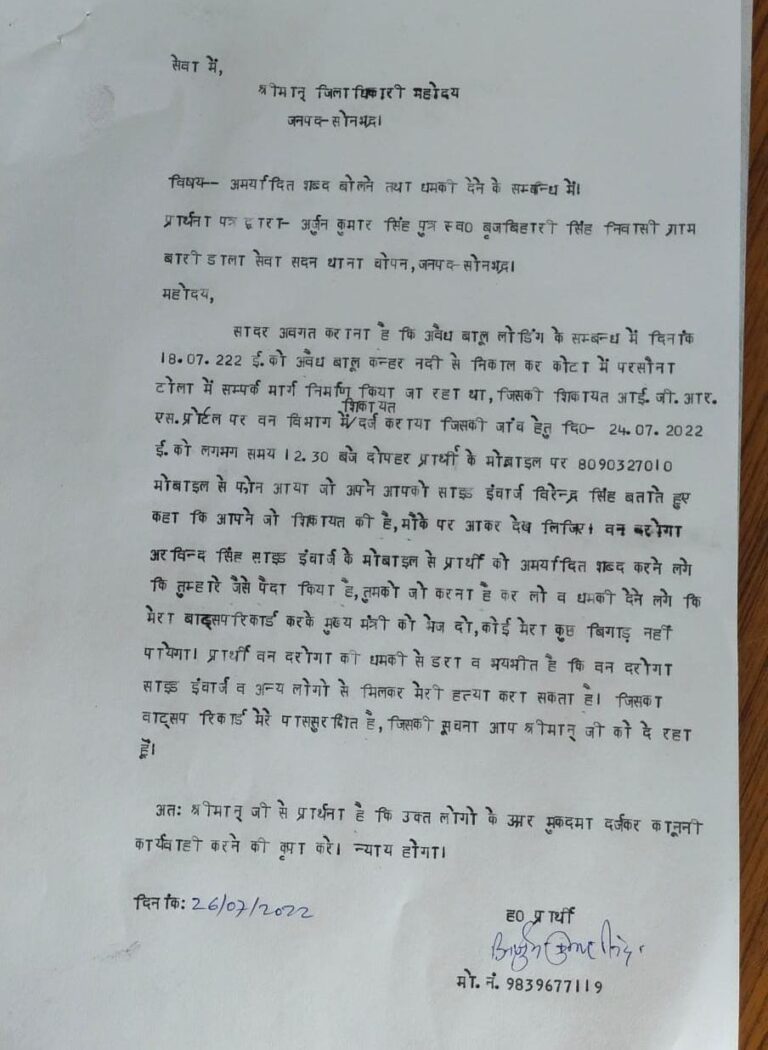 सेवा में,
श्रीमान् जिलाधिकारी महोदय
जनपद-सोनभद्र।
विषय-- अमर्यादित शब्द बोलने तथा धमकी देने के सम्बन्ध में।
प्रार्थना पत्र द्वारा- अर्जुन कुमार सिंह पुत्र स्व0 बृजबिहारी सिंह निवासी ग्राम
बारी डाला सेवा सदन थाना चोपन,जनपद-सोनभद्र।
महोदय,
सादर अवगत कराना है कि अवैध बालू लोडिंग के सम्बन्ध में दिनांक
18.07.222 ई.को अवैध बालू कन्हर नदी से निकाल कर कोटा में परसौना
टोला में सम्पर्क मार्ग निर्माण किया जा रहा था,जिसकी शिकायत आई.जी.आर.
शिकायत
एस.पोर्टल पर वन विभाग में/दर्ज कराया जिसकी जांच हेतु दि0- 24.07.2022
ई.को लगभग समय 12.30 बजे दोपहर प्रार्थी के मोबाइल पर 8090327010
मोबाइल से फोन आया जो अपने आपको साइड इंचार्ज विरेन्द्र सिंह बताते हुए
कहा कि आपने जो शिकायत की है,मौके पर आकर देख लिजिए। वन दरोगा
अरविन्द सिंह साइड इंचार्ज के मोबाइल से प्रार्थी को अमर्यादित शब्द करने लगे
कि तुम्हारे जैसे पैदा किया है,तुमको जो करना है कर लो व धमकी देने लगे कि
मेरा वाट्सपरिकार्ड करके मुख्य मंत्री को भेज दो,कोई मेरा कुछ बिगाड़ नहीं
पायेगा। प्रार्थी वन दरोगा की धमकी से डरा व भयभीत है कि वन दरोगा
साइड इंचार्ज व अन्य लोगो से मिलकर मेरी हत्या करा सकता है। जिसका
वाट्सप रिकार्ड मेरे पाससुरक्षित है,जिसकी सूचना आप श्रीमान् जी को दे रहा
हूँ।
अतः श्रीमान् जी से प्रार्थना है कि उक्त लोगो के ऊपर मुकदमा दर्जकर कानूनी
कार्यवाही करने की कृपा करे। न्याय होगा।
दिनांक: 26/07/2022
ह0 प्रार्थी
अर्जुन कुमार सिंह
मो. नं. 9839677119